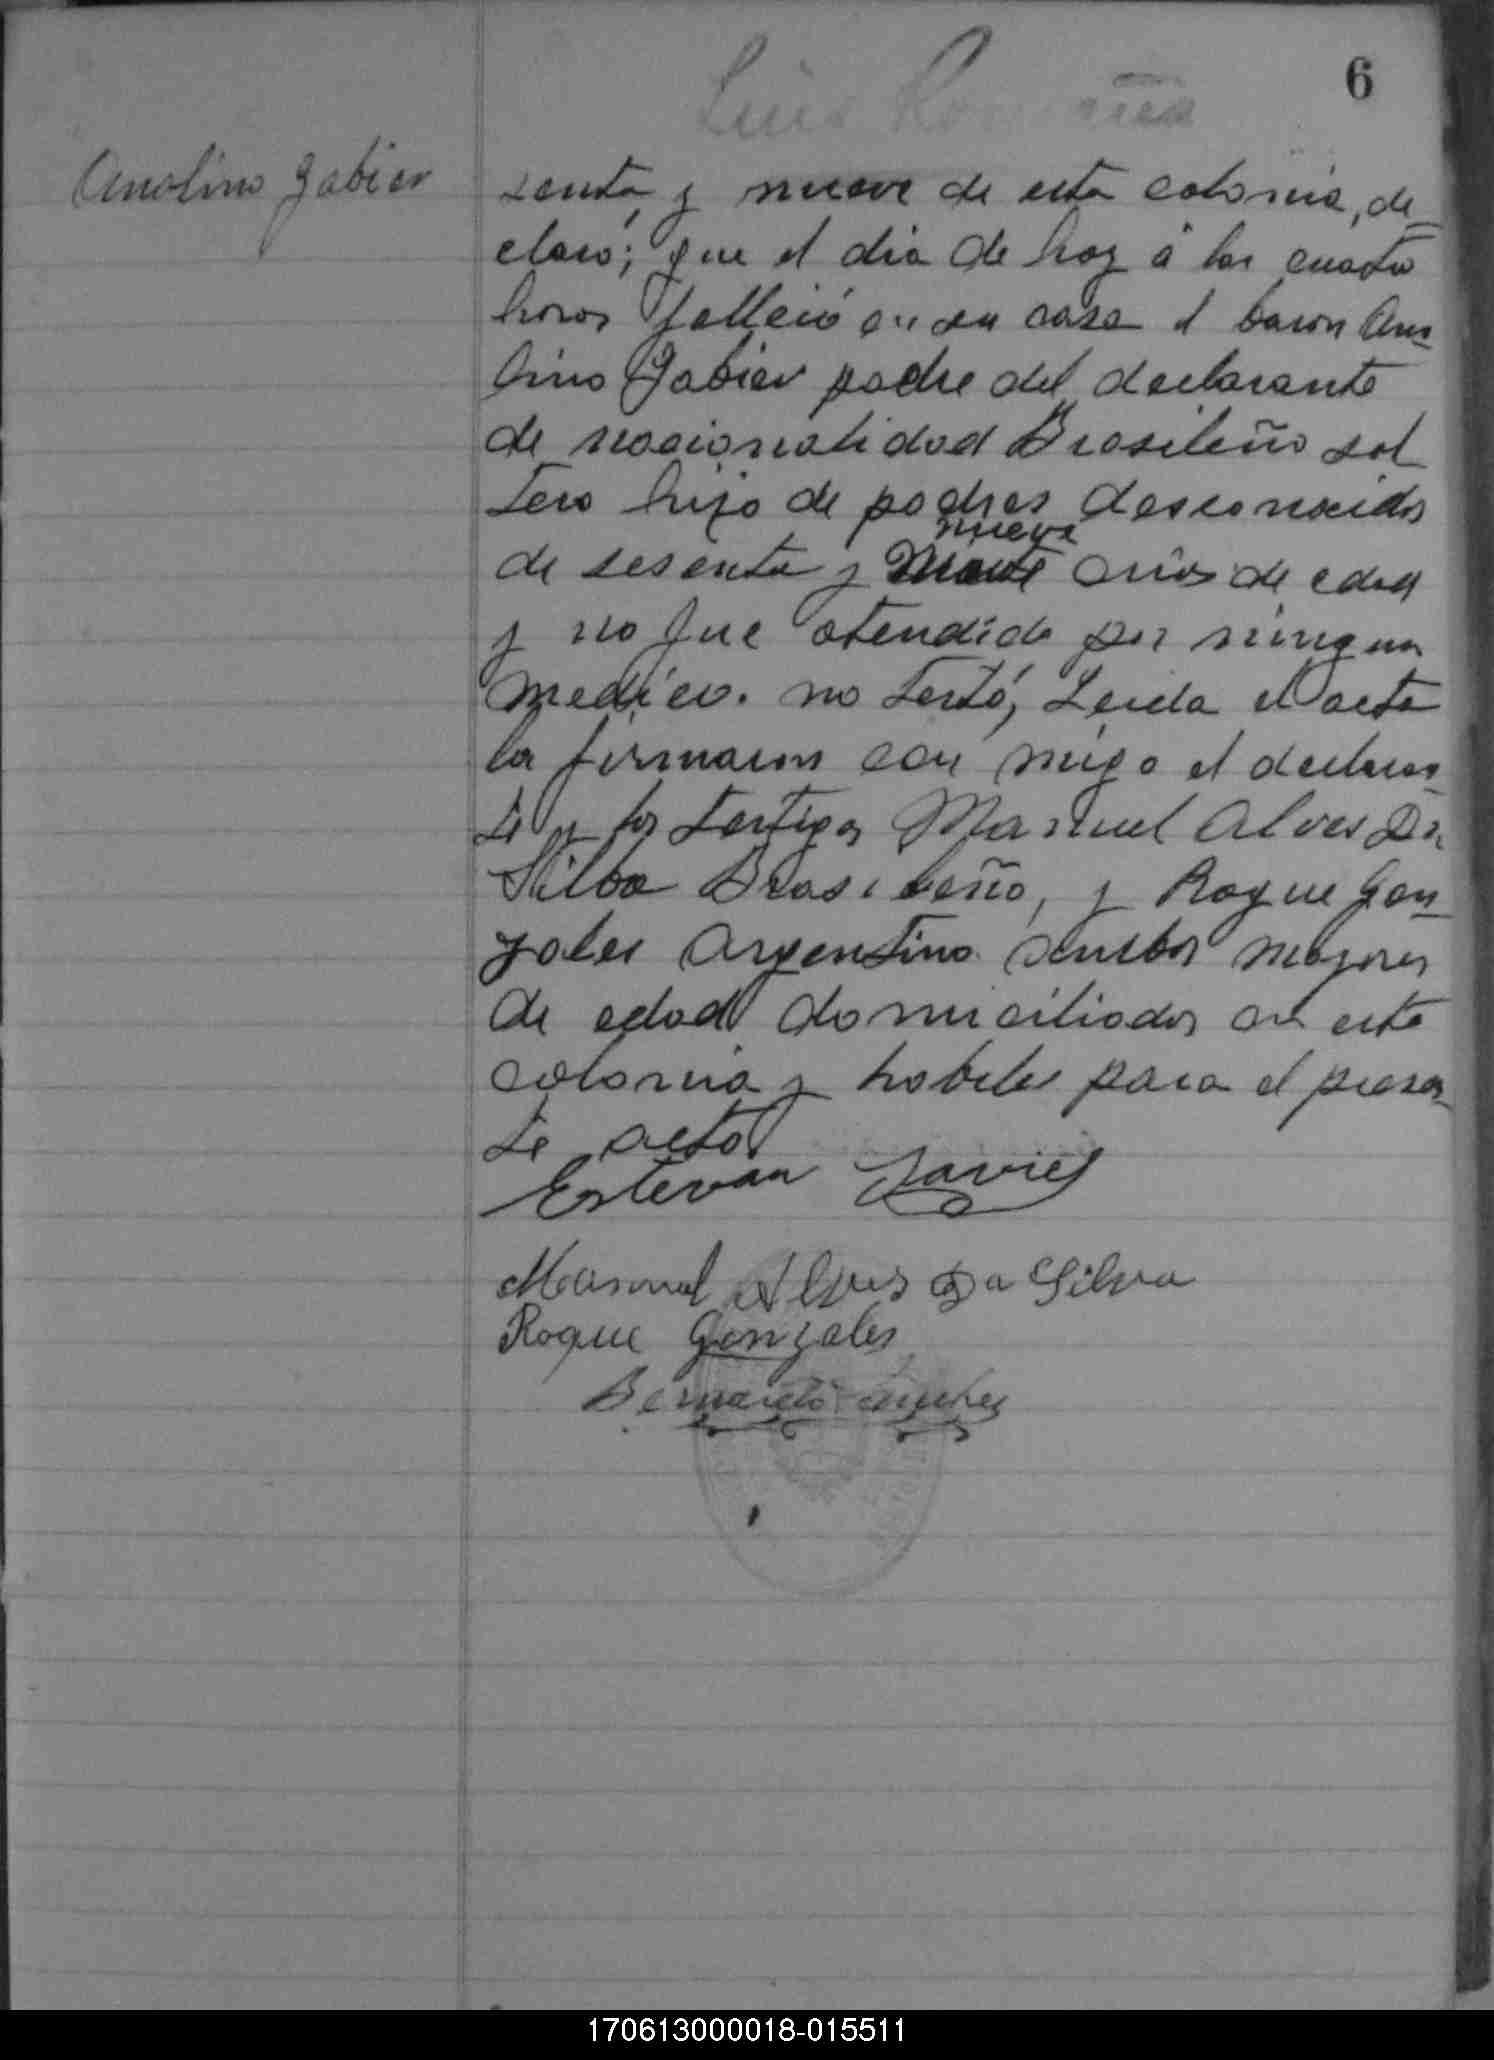 6
Luis
Anolino Gabier
senta y nueve de esta colonia, de_
claro; que el dia de hoy á las cuatro
horas fallecio en su casa el baron Ano_
lino Gabier padre del declarante
de nacionalidad Brasileño sol
tero hijo de padres desconocidos
nueve
de sesenta y nueve años de edad
y no fue atendido por ningun
medico. no testó, Leida el acta
la firmaron con migo el declaran_
te y los testigos Manuel Alves Da
Silba Brasileño, y Roque Gon_
zales Argentino ambos mayores
de edad domiciliados en esta
colonia y habiles para el presen_
te acto
Estevan Javier
Manuel Alves Da Silva
Roque Gonzales
Bernardo
170613000018-015511